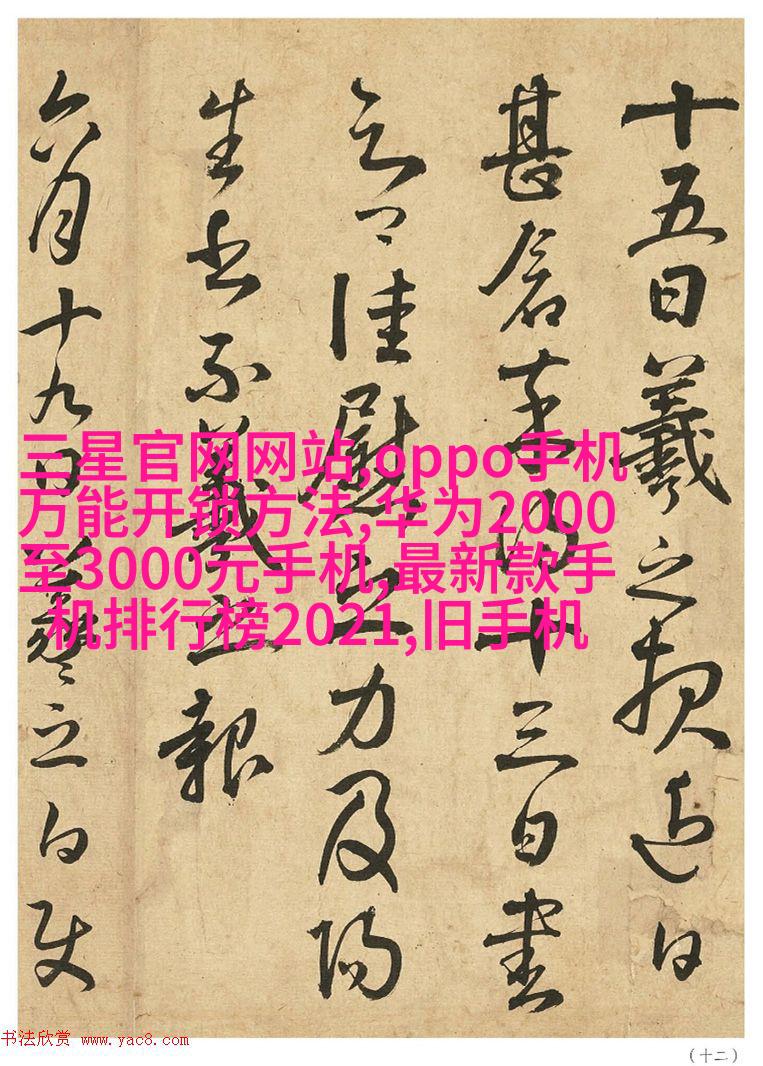 十五日羲之頓近日
甚得十三日書
佳慰之力及
生不羲之報
六月十九日羲之白使
三星官网网站,oppo手机
万能开锁方法,华为2000
至3000元手机,最新款手
机排行榜2021,旧手机
书法欣赏 www.yac8.com
(十二)